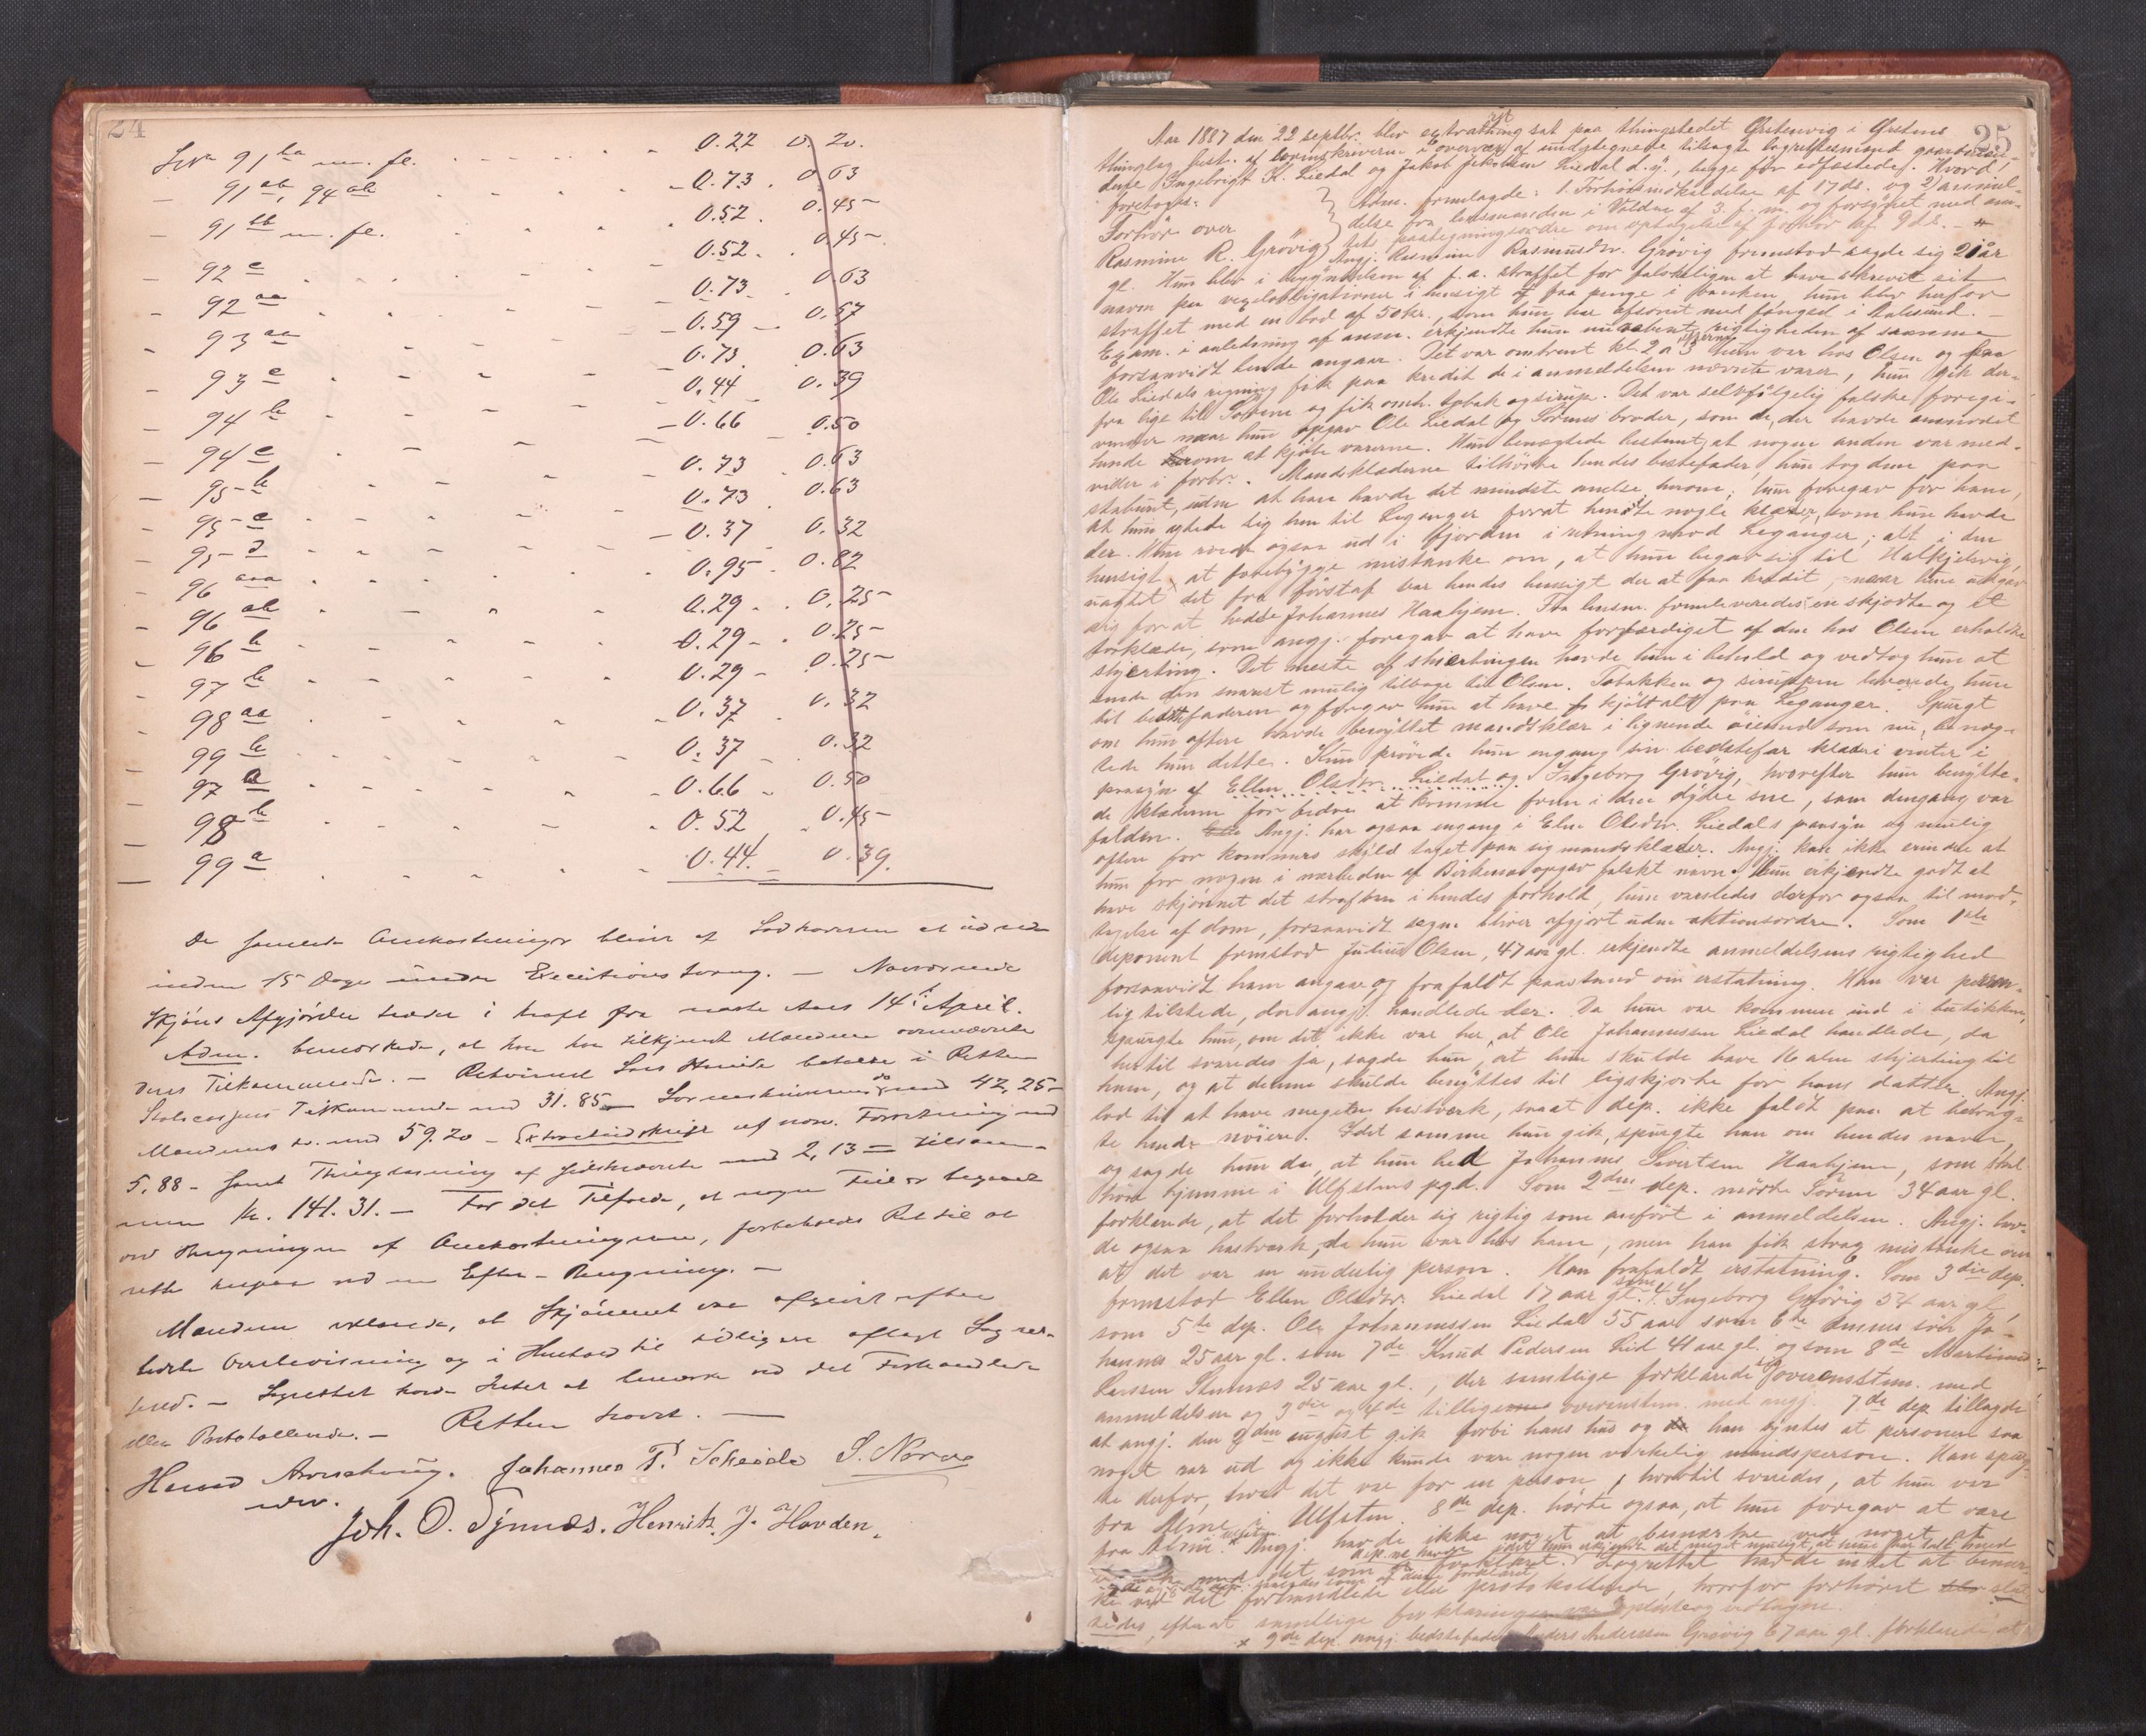 24
91 ba m. fl. 0.22 0.20.
— 91 ab, 94 ab 0.73. 0.63
— 91 bb m. fl. 0.52. 0.45
— 92 c 0.52. 0.45
— 92 aa 0.73. 0.63
— 93 aa 0.59 0.57
— 93 c 0.73. 0.63
— 94 b 0.44 0.39
— 94 c 0.66 0.50
— 95 b 0.73 0.63
— 95 c 0.73 0.63
— 95 d 0.37 0.32
— 96 aaa 0.95 0.82
— 96 ab 0.29 0.25
— 96 b 0.29 0.25
— 97 b 0.29 0.25
— 98 aa 0.37 0.32
— 99 b 0.37 0.32
— 97 a 0.66 0.50
— 98 b 0.52 0.45
— 99 a 0.44 0.39.
De samlede Omkostninger bliver af at udrede
inden 15 Dage under Executions tvang. — Nærværende
Skjøns Afgjørelse træder i kraft fra næste Aars 14de April.
Adm. bemærkede, at han har tilkjendt Mændene ovennævnte
deres Tilkommende. — Retsvidnet Lars betalte i Retten
Statscassens Tilkommende med 31.85 — Sorenskriverens do med 42,25
Mændenes do. med 59.20 — Extraudskrift af Forretning med
5,88 — samt Thinglæsning af sidstnævnte med 2,13 = tilsam-
men Kr. 141.31. — For det Tilfælde, at nogen Feil er begaaet
ved Beregningen af Omkostningerne, forbeholdes Ret til at
rette saadan ved en Efter-Beregning. —
Mændene erklærede, at Skjønnet var afgivet efter
bedste Overbevisning og i Henhold til tidligere aflagt Lagret-
tesed. — Lagrettet havde Intet at bemærke ved det Forhandlede
eller Protokollerede. — Retten hævet. —
Johannes P. S.
Joh. O. Tynnes. Henrik J. Hovden.
25
Aar 1887 den 22 septbr. blev extraret thing sat paa thingstedet Ørstenvig i Ørstens
thinglag best. af sorenskriveren i overvær af undertegnede tilsagte lagrettesmænd gaardbru-
dere Ingebrigt K. Liedal og Jakob Jakobsen Liedal d. y., begge før edfæstede. Hvorda
foretoges: Adm. fremlagde: 1. Forhørsanmeldelse af 17 ds. og 2) anmel-
Forhør over delse fra lensmanden i Volden af 3. f. m. og forsynet med am-
Rasmine R. Grøvig tets paategningsordre om optagelse af forhør af 9 ds. —
Angj. Rasmine Rasmusdtr. Grøvig fremstod sagde sig 21 år
gl. Hun blev i begyndelsen af f. a. straffet for falskeligen at have skrevet sit
navn paa vexelobligationer i hensigt af faa penge i banken, hun blev herfor
straffet med en bod af 50 kr., som hun har afsonet med fængsel i Aalesund. —
Exam. i anledning af anm. erkjendte hun uvæbent rigtigheden af samme
forsaavidt hende angaar. Det var omtrent kl. 2 a 3 hun var hos Olsen og paa
Ole Liedals regning fik paa kredit de i anmeldelsen nævnte varer, hun gik der-
fra lige til Sørene og fik omh. tobak og sirup. Det var selvfølgelig falske foregi-
vender naar hun opgav Ole Liedal og Sørenes broder, som de, der havde anmodet
hende herom at kjøbe varerne. Hun benægtede bestemt, at nogen anden var med-
vider i forbr. Mandsklæderne tilhørte hendes bestefader, hun tog dem paa
staburet, uden at han havde det mindste anelse herom; hun foregav for ham,
at hun agtede sig hen til Leganger forat hente nogle klæder, som hun havde
der. Hun roede ogsaa ud i fjorden i retning mod Leganger; alt i den
hensigt at forebygge mistanke om, at hun begav sig til Halkjelsvig,
uagtet det fra først af var hendes hensigt der at faa kredit, naar hun udgav
sig for at hedde Johannes Haahjem. Fra lensm. fremleveredes en skjorte og et
forklæde, som angj. foregav at have forfærdiget af den hos Olsen erholdte
skjerting. Det meste af skjertingen havde hun i behold og vedtog hun at
sende den snarest mulig tilbage til Olsen. Tobakken og sirupen leverede hun
til bedstefaderen og foregav hun at have kjøbt alt paa Leganger. Spurgt
om hun oftere havde benyttet mandsklær i lignende øiemed som nu, benæg-
tede hun dette. Kun prøvede hun engang sin bedstefar klæder i vinter i
paasyn af Ellen Olsdtr. Liedal og Ingeborg Grøvig, hvorefter hun benytte-
de klæderne for bedre at komme frem i den dybe sne, som dengang var
falden. Angj. har ogsaa engang i Elen Olsdtr. Liedals paasyn og mulig
oftere for kommers skyld taget paa sig mandsklæder. Angj. kan ikke erindre at
hun for nogen i nærheden af Birkenæs opgav falskt navn. Hun erkjendte godt at
have skjønnet det strafbare i hendes forhold, hun varsledes derfor ogsaa til mod-
tagelse af dom, forsaavidt sagen bliver afgjort uden aktionsordre. Som 1ste
deponent fremstod Julius Olsen, 47 aar gl. erkjendte anmeldelsens rigtighed
forsaavidt ham angaar og frafaldt paastand om erstatning. Han var person-
lig tilstede, da angj. handlede der. Da hun var kommen ind i butikken,
spurgte hun, om det ikke var her, at Ole Johannessen Liedal handlede, da
hertil svaredes ja, sagde hun, at hun skulde have 16 alen skjerting til
ham, og at denne skulde benyttes til ligskjorte for hans datter. Angj.
lod til at have meget hastværk, saaat dep. ikke faldt paa at betrag-
te hende nøiere. I det samme hun gik, spurgte han om hendes navn,
og sagde hun da, at hun hed Johannes Sivertsen Haahjem, som skal
høre hjemme i Ulfstens pgd. Som 2den dep. mødte Sørene 34 aar gl.
forklarede, at det forholder sig rigtig som anført i anmeldelsen. Angj. hav-
de ogsaa hastværk, da hun var hos ham, men han fik strax mistanke om
at det var en underlig person. Han frafaldt erstatning. Som 3die dep.
fremstod Ellen Olsdtr. Liedal 17 aar gl. som 4. Ingeborg Grøvig 54 aar gl
som 5te dep. Ole Johannessen Liedal 55 aar som 6te sön Jo-
hannes 25 aar gl. som 7de Knud Pedersen Lid 41 aar gl. og som 8de Martinus
Larssen 25 aar gl., der samtlige forklarede sig overensstem. med
anmeldelsen og 3die og 4de tillige overenstem. med angj. 7de dep. tillagde
at angj. den 2den august gik forbi hans hus og han syntes at personen saa
noget rar ud og ikke kunde være nogen virkelig mandsperson. Han spurg-
te derfor, hvad det var for en person, hvortil svaredes, at hun var
fra Alme i Ulfsten. 8de dep. hørte ogsaa, at hun foregav at være
fra Alme. Angj. havde ikke noget at bemærke ved noget af
det som dep.ne havde forklaret. Lagrettet havde intet at bemær-
ke ved det forhandlede eller protokollerede, hvorfor forhøret slut-
tedes, efterat samtlige forklaringer var oplæste og vedtagne.
x 9de dep. angj. bedstefader Anders Anderssen Grøvig 67 aar gl. forklarede at